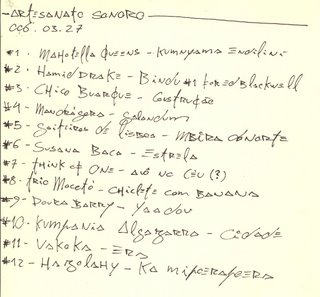 -ARTESANATO SONORO-
006.03.27
#1. MAHOTELLA QUEENS - KUMNYAMA ENDLINI
#2. HAMID DRAKE - BINDU #1 FOR ED BLACKWELL
#3 - CHICO BUARQUE - COSTRUÇÃO
#4 - MANDRÁGORA - GALANDUM
#5 - GAITEIROS DE LISBOA - MBIRA DÓNORTE
#6 - SUSANA BACA - ESTRELA
#7 - THINK OF ONE - NO CEU (?)
#8 - TRIO MOCOTÓ - CHICLETE COM BANANA
#9 - DOURA BARRY - YAADOU
#10 - KUMPANIA ALGAZARRA - CIDADE
#11 - VAKOKA - ERA
#12 - HAZOLAHY - KA